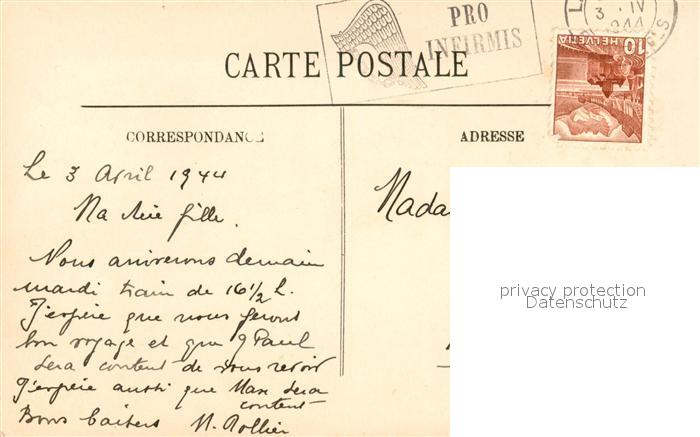 PRO
INFIRMIS
3 IV
1944
10 HELVETIA
CARTE POSTALE
CORRESPONDANCE
ADRESSE
Le 3 Avril 1944
Ma chère fille.
Nous arriverons demain
mardi train de 16 1/2 h.
J'espère que nous ferons
bon voyage et que Paul
sera content de vous revoir
J'espère aussi que Max sera
content
Bons baisers M. Rollier
Mada
privacy protection
Datenschutz